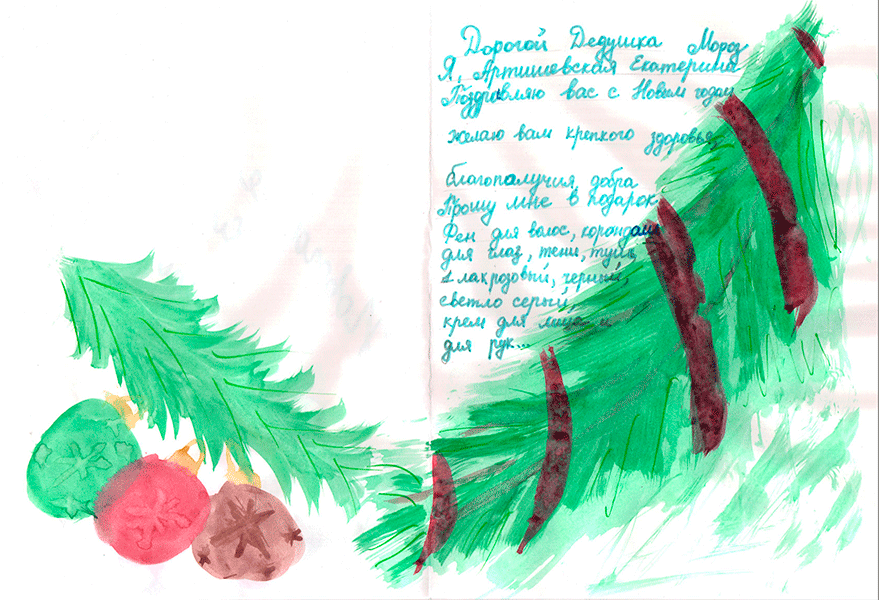 Дорогой Дедушка Мороз
Я, Артишевская Екатерина
Поздравляю вас с Новым годом
желаю вам крепкого здоровья,
благополучия, добра
Прошу мне в подарок
Фен для волос, корондаш
для глаз, тени, тушь,
1 лак розовый, черный,
светло серый,
крем для лица и
для рук...